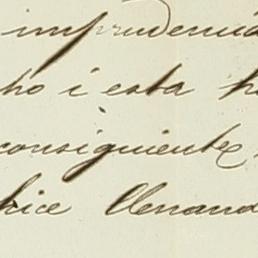 imprudencia
ho i esta h
consiguiente
hice llenand